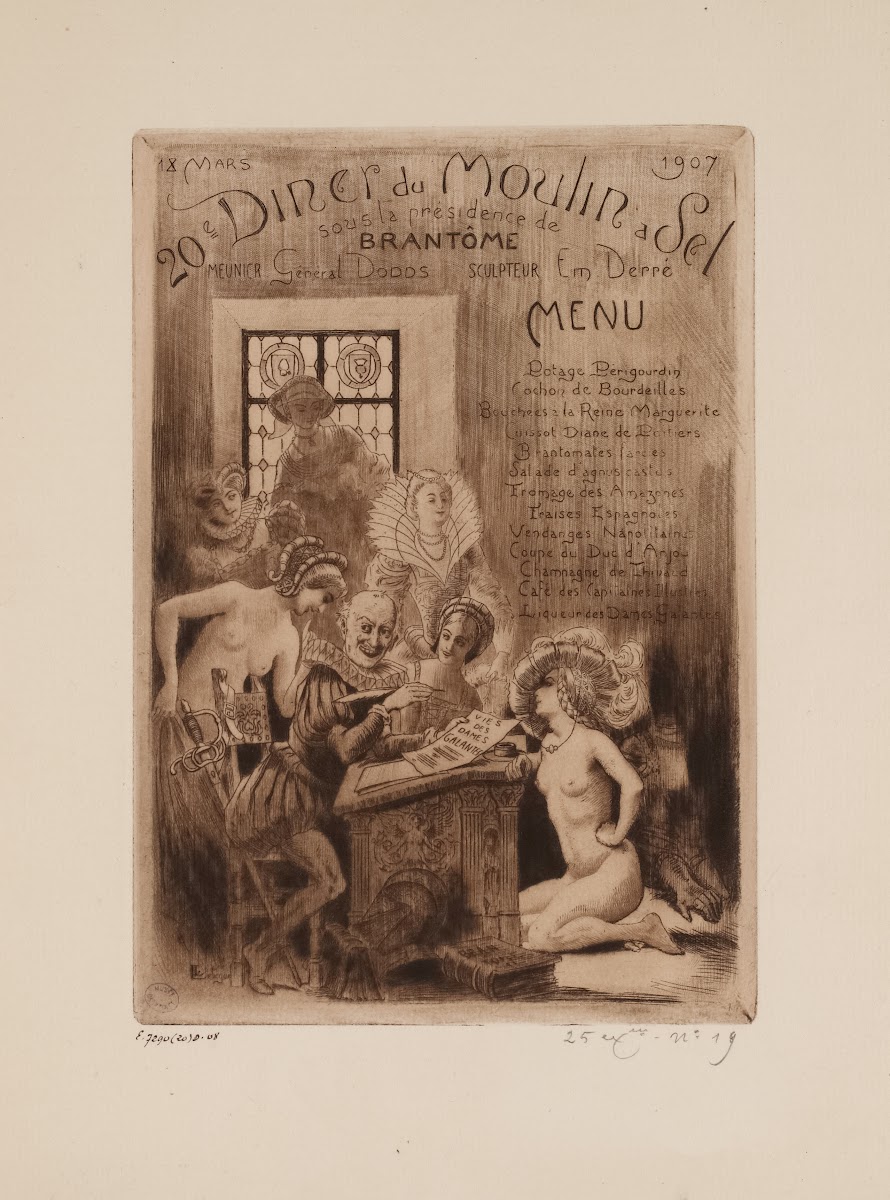 18 MARS 1907
20e Diner du Moulin à Sel
sous la présidence de
BRANTÔME
MEUNIER Général Dodds SCULPTEUR Em Derré
MENU
Potage Périgourdin
Cochon de Bourdeilles
Bouchées à la Reine Marguerite
Cuissot Diane de Poitiers
Brantomates farcies
Salade d'agnus castus
Fromage des Amazones
Fraises Espagnoles
Vendanges Napolitaines
Coupe du Duc d'Anjou
Champagne de
Café des Capitaines Illustres
Liqueur des Dames Galantes
VIES
DES
DAMES
GALANTES
E. 7290 (20) D. 08
25 exres - No 19